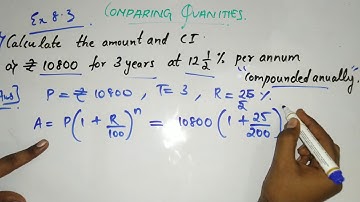 Ex 8.3
COMPARING QUANITIES.
Calculate the amount and CI
₹ 10800 for 3 years at 12 1/2 % per annum
"compounded anually".
Ans] P = ₹ 10800, T= 3, R = 25/2 %.
A = P(1 + R/100)^n = 10800 (1 + 25/200)